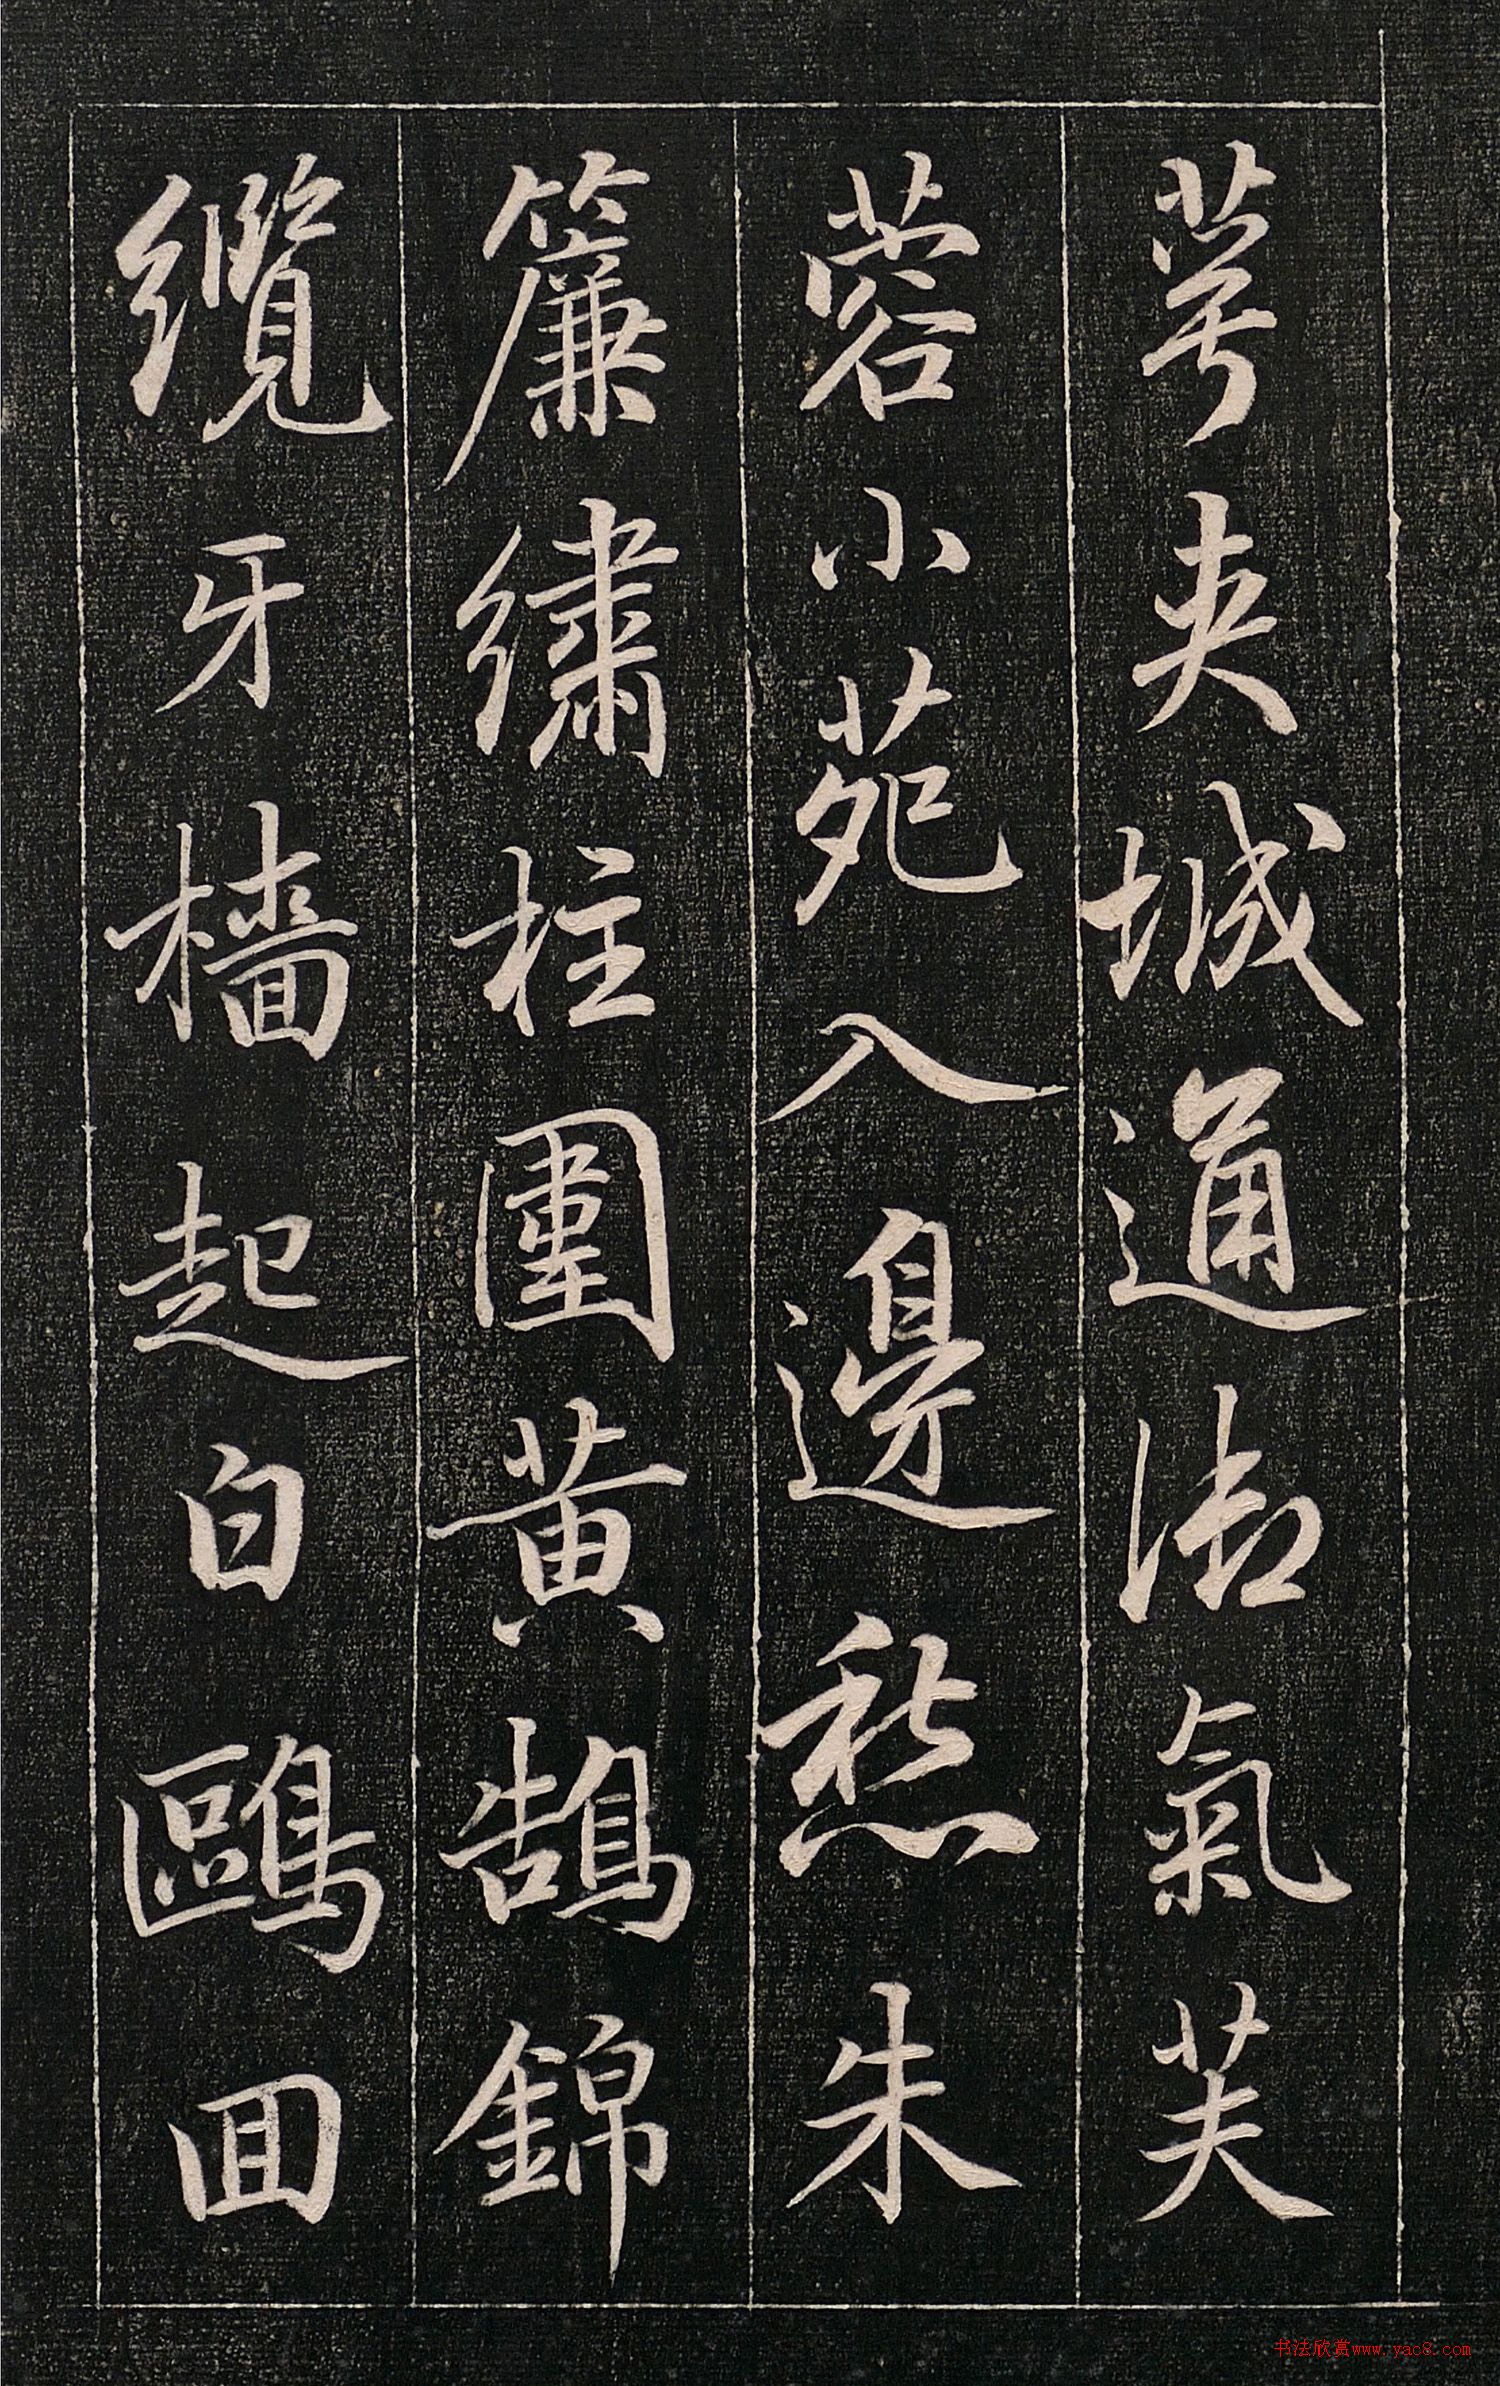 萼夾城通御氣芙
蓉小苑入邊愁朱
簾繡柱圍黃鵠錦
纜牙檣起白鷗回
书法欣赏www.yac8.com